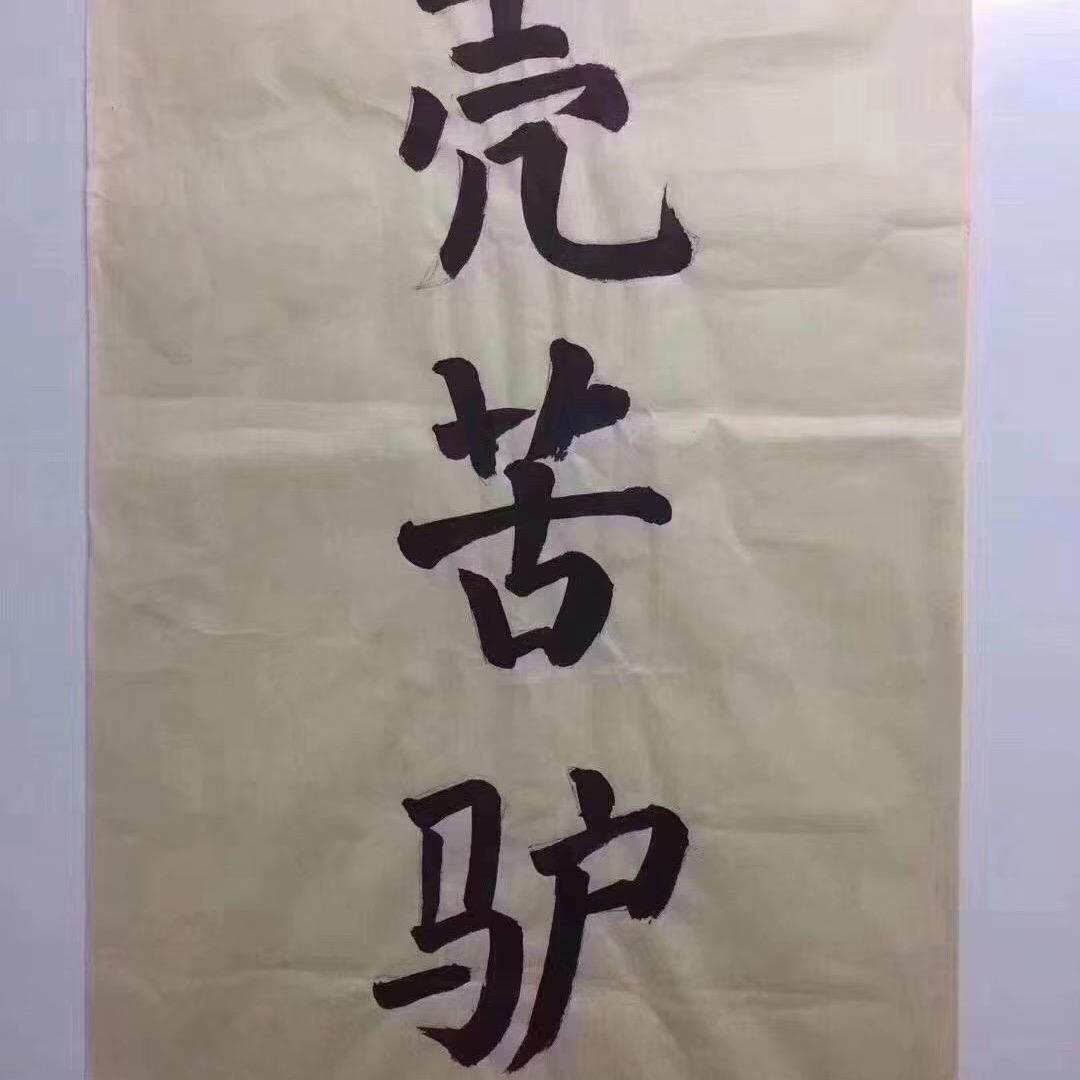 壳苦驴